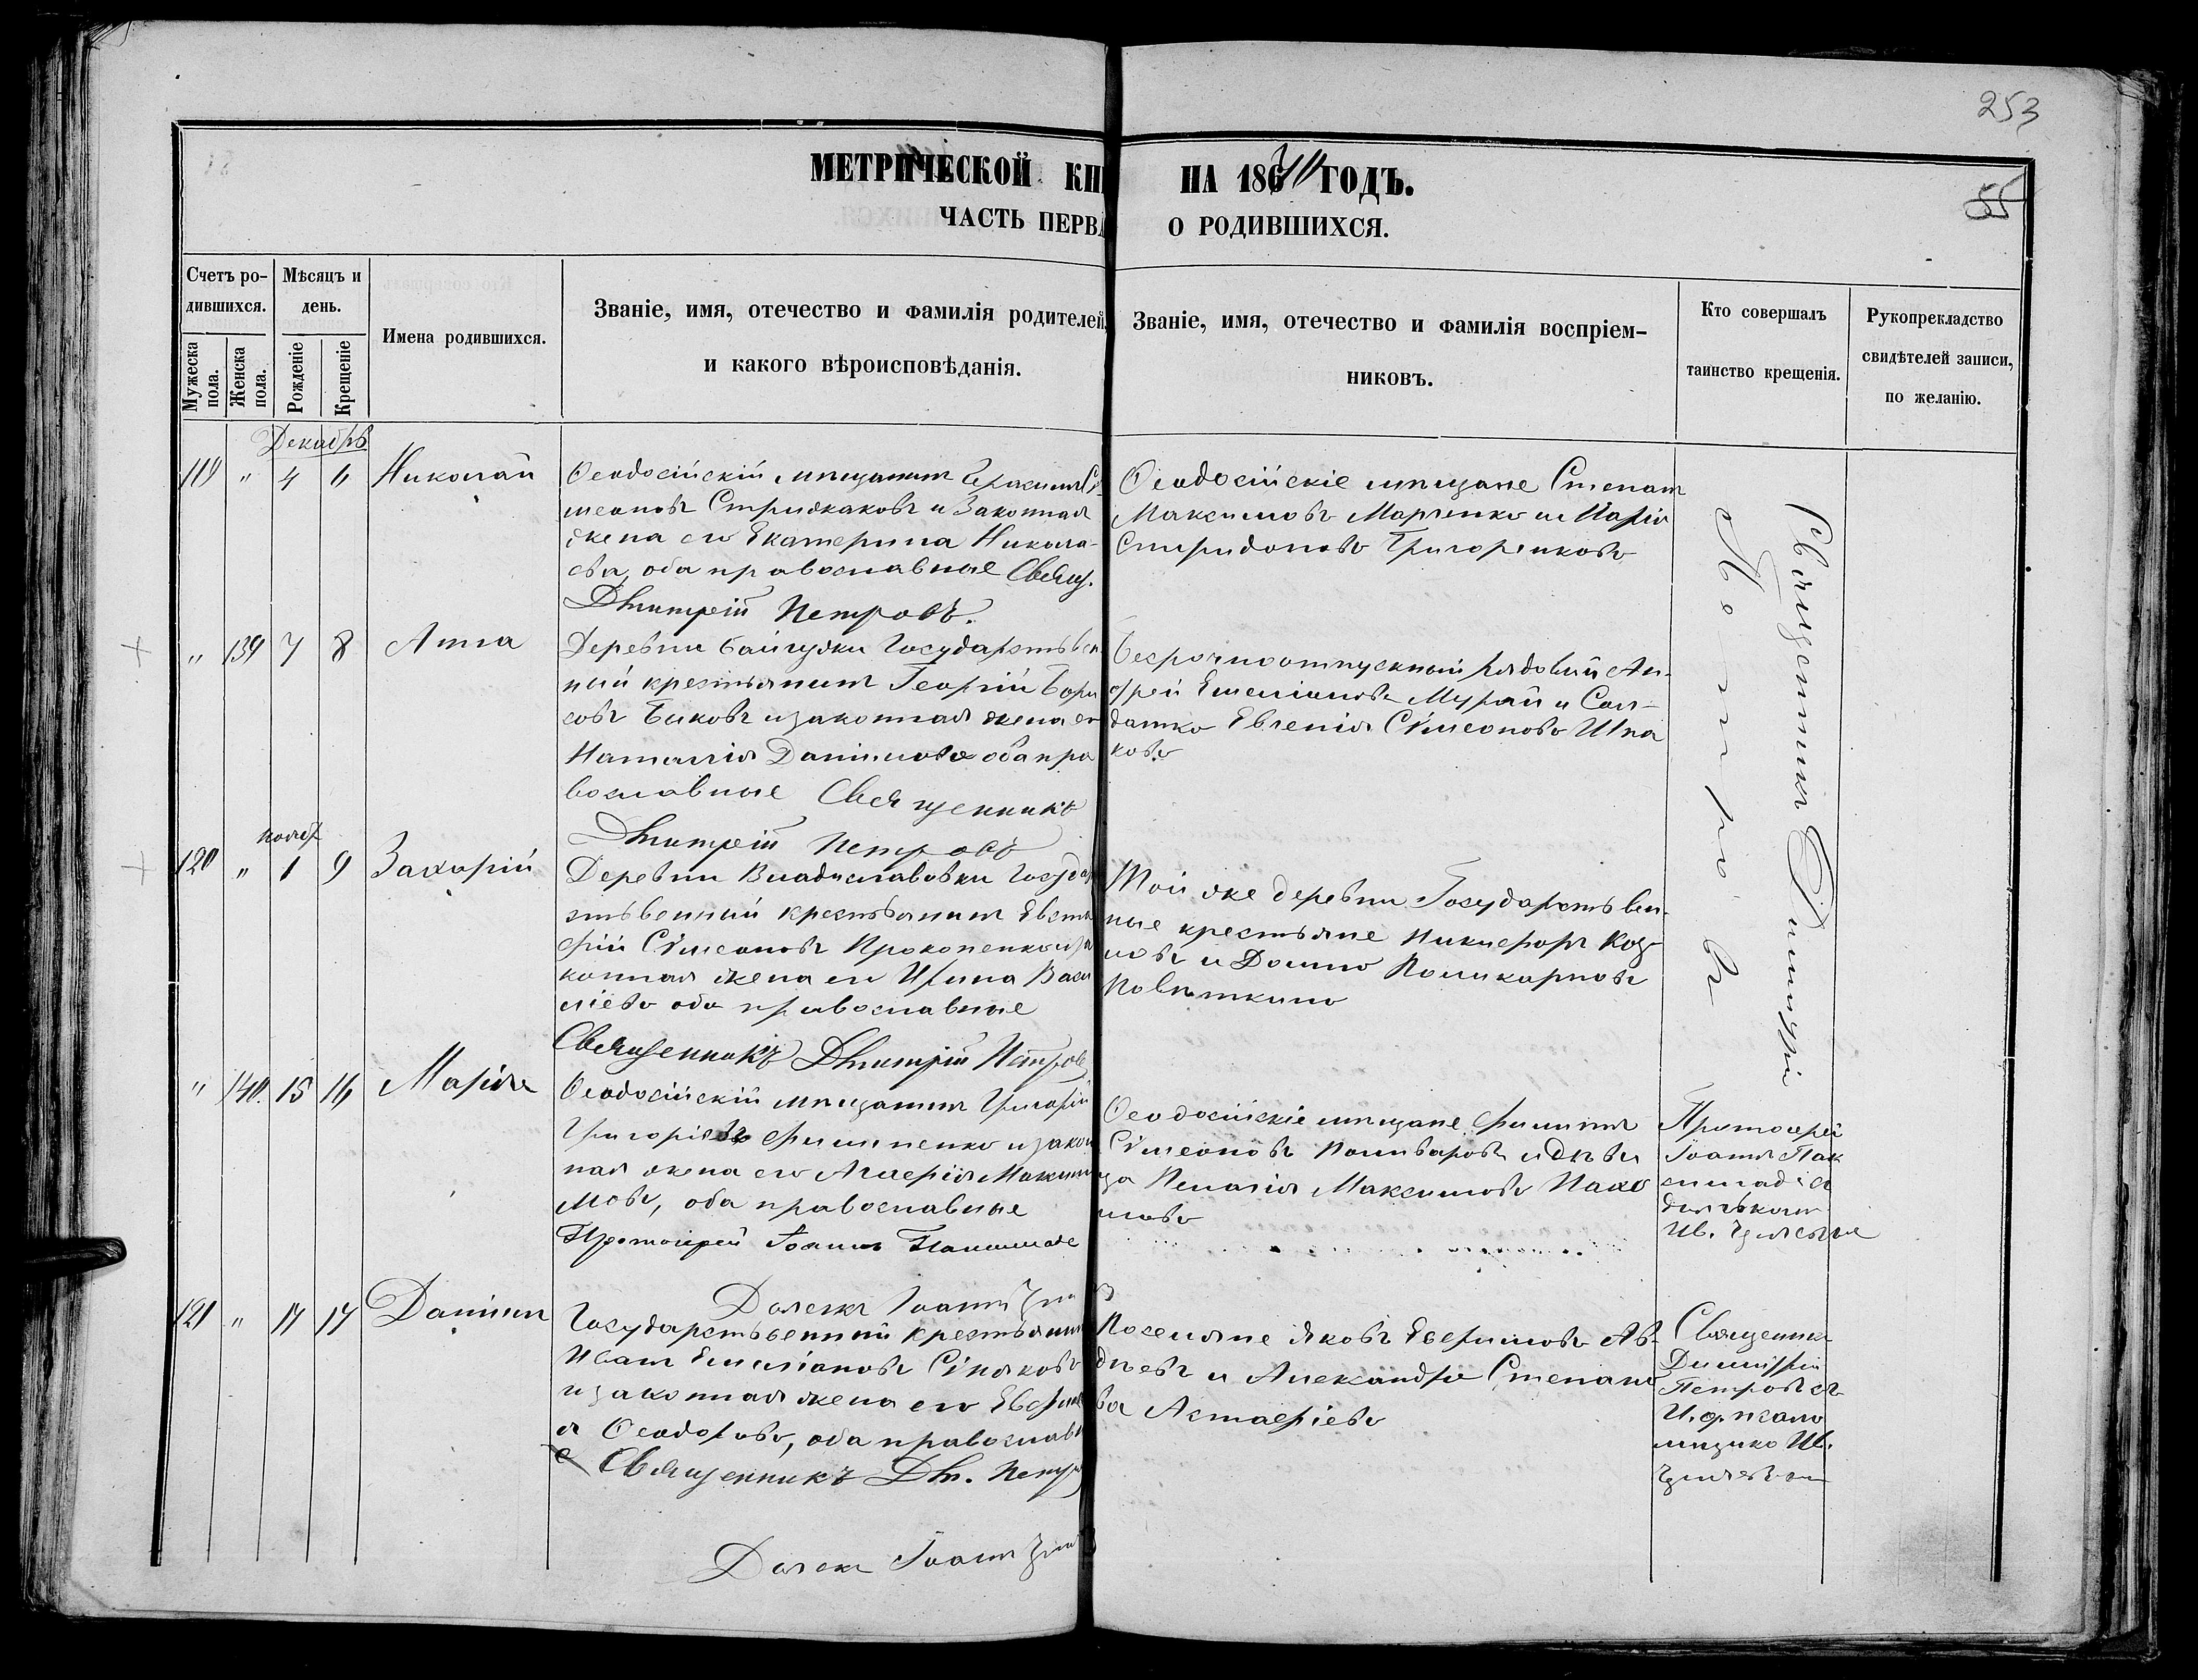 253
55
МЕТРИЧЕСКОЙ КН НА 1870 ГОДЪ.
ЧАСТЬ ПЕРВА О РОДИВШИХСЯ.
Счетъ ро-
дившихся.
Мужеска пола.
Женска пола.
Мѣсяцъ и
день.
Рожденіе
Крещеніе
Имена родившихся.
Званіе, имя, отечество и фамилія родителей,
и какого вѣроисповѣданія.
Званіе, имя, отечество и фамилія воспріем-
никовъ.
Кто совершалъ
таинство крещенія.
Рукоприкладство
свидѣтелей записи,
по желанію.
Декабрь
119 " 4 6 Николай
Ѳеодосійскій мѣщанинъ Герасимъ Сѵ-
меоновъ Стрижаковъ и законная
жена его Екатерина Никола-
ева, оба православные Свящ.
Дмитрій Петровъ.
Ѳеодосійскіе мѣщане Степанъ
Максимовъ Марченко и Марія
Спиридонова Григоренкова
Священникъ Димитрій
Петровъ
" 139 7 8 Анна
Деревни Байгужи Государствен
ный крестьянинъ Георгій Бори
совъ Быковъ и законная жена ег
Наталія Данилова оба пра
вославные Священникъ
Дмитрій Петровъ
Безсрочноотпускный рядовый Ан-
дрей Емеліановъ Мурай и Сол-
датка Евгенія Сѵмеонова Шпа
кова
нояб.
120 " 1 9 Захарій
Деревни Владиславовки Государ
ственный крестьянинъ Евста
фій Сѵмеоновъ Прокопенко и за
конная жена его Ирина Васи
ліева оба православные
Священникъ Дмитрій Петров
Той же деревни Государствен-
ные крестьяне Никифоръ Коз-
ловъ и Домна Поликарпова
" 140. 15 16 Марія
Ѳеодосійскій мѣщанинъ Григорій
Григоріевъ Филипенко и закон
ная жена его Гликерія Макси
мова, оба православные
Протоіерей Іоаннъ
Ѳеодосійскіе мѣщане Филиппъ
Сѵмеоновъ Поливаровъ и дѣви
ца Пелагія Максимова Пахо
мова
Протоіерей
Іоаннъ
дьячкомъ
Ив.
121 " 17 17 Даніилъ
Дьячекъ Іоаннъ
Государственный крестьянинъ
Иванъ Емиліановъ Сѵпяковъ
и законная жена его Евфимі
я Ѳеодорова, оба православны
е Священникъ Дм. Петро
Дьячек Іоаннъ
Поселяне Яковъ Евфимовъ Ав-
дѣевъ и Александра Степано
ва Астафіева
Священникъ
Димитрій
Петровъ съ
И. д. псало
мщика Ив.